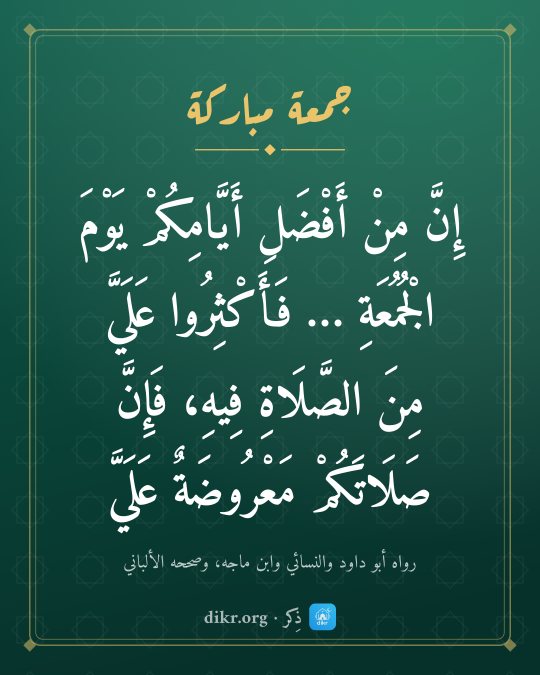 جمعة مباركة
إِنَّ مِنْ أَفْضَلِ أَيَّامِكُمْ يَوْمَ
الْجُمُعَةِ ... فَأَكْثِرُوا عَلَيَّ
مِنَ الصَّلَاةِ فِيهِ، فَإِنَّ
صَلَاتَكُمْ مَعْرُوضَةٌ عَلَيَّ
رواه أبو داود والنسائي وابن ماجه، وصححه الألباني
ذِكر · dikr.org
dikr